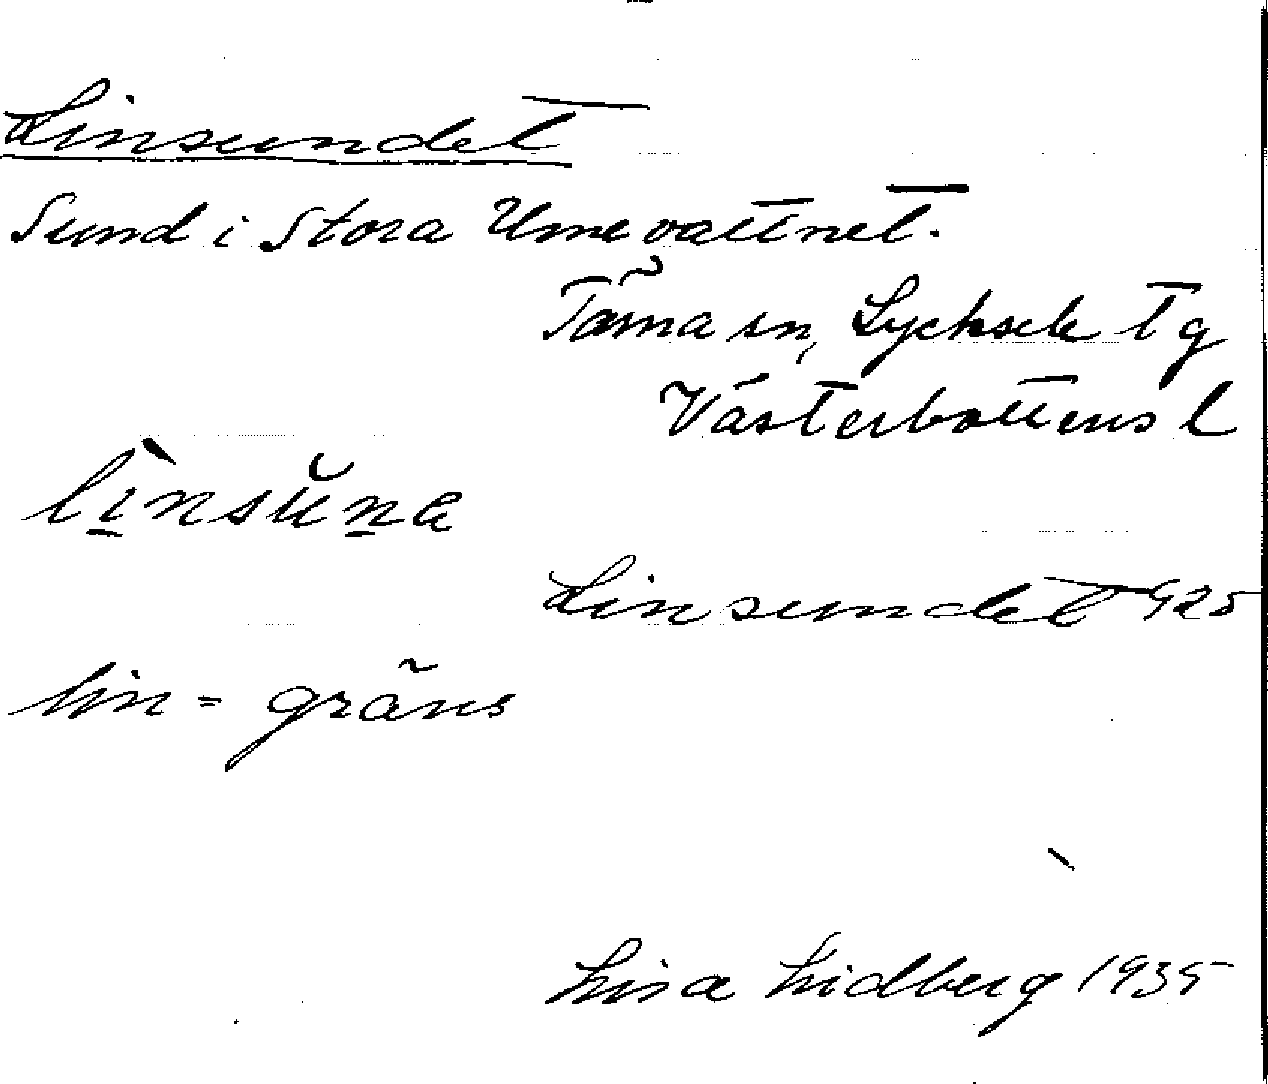 Linsundet
Sund i Stora Umevattnet.
Tärna sn, Lycksele Tg
Västerbottens l
lìnsŭna
Linsundet 925
lin = gräns
Lisa Lidberg 1935